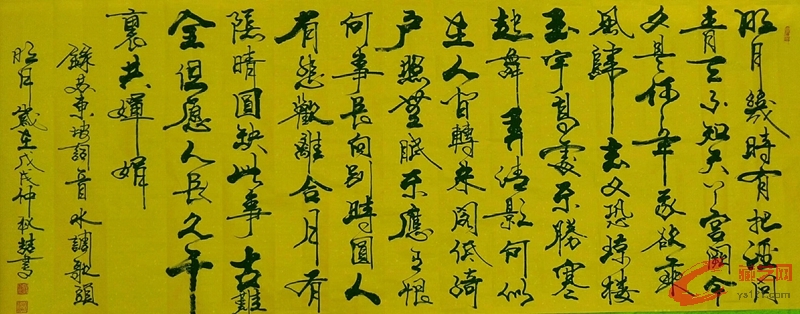 明月幾時有把酒問
青天不知天上宮闕今
夕是何年我欲乘
風歸去又恐瓊樓
玉宇高處不勝寒
起舞弄清影何似
在人間轉朱閣低綺
户照無眠不應有恨
何事長向別時圓人
有悲歡離合月有
陰晴圓缺此事古難
全但愿人長久千
裏共嬋娟
錄苏東坡詞壹首水調歌頭
明月歲在戊戌仲秋書